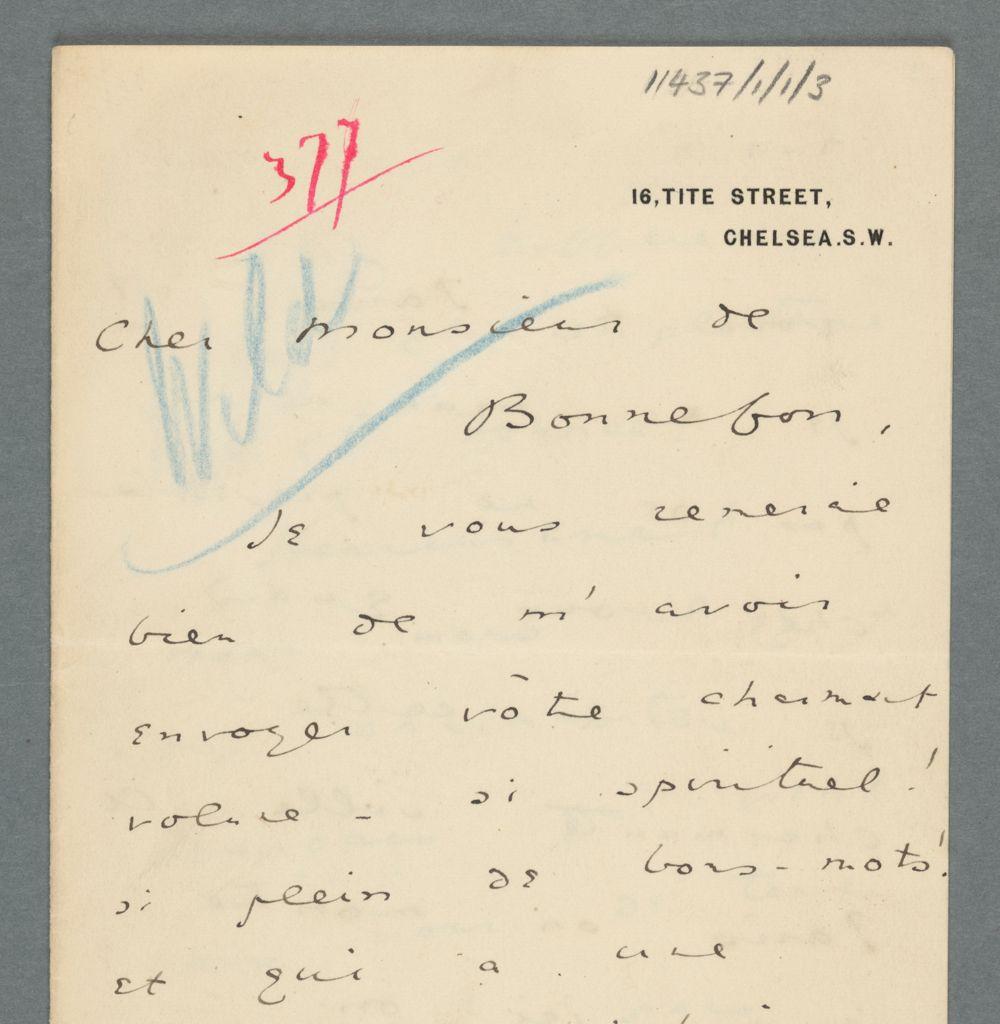 11437/1/1/3
377
16, TITE STREET,
CHELSEA. S. W.
Wilde
Cher Monsieur de
Bonnefon,
Je vous remercie
bien de m'avoir
envoyer vôtre charmant
volume - si spirituel!
si plein de bons-mots!
et qui a une